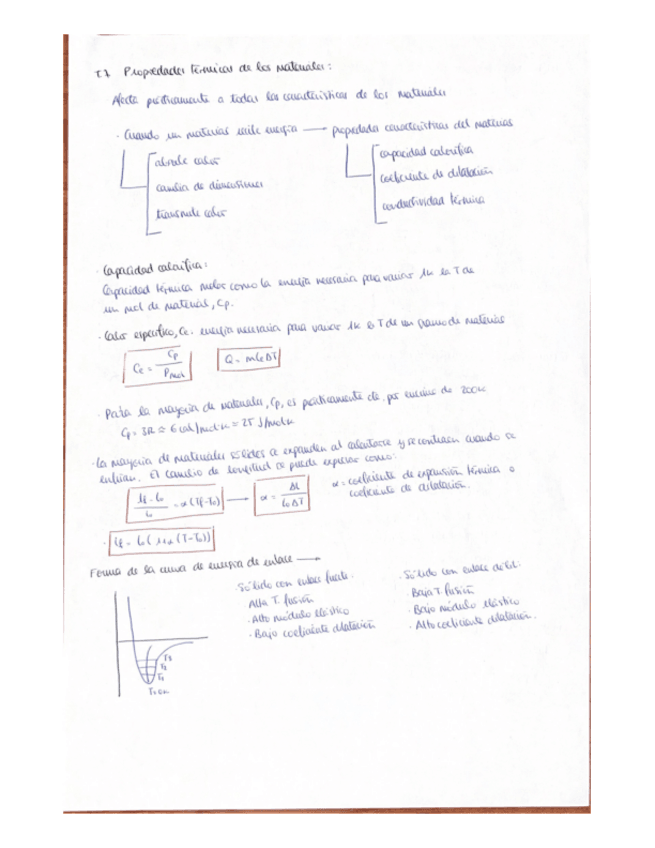 T.7 Propiedades térmicas de los materiales:
Afecta prácticamente a todas las características de los materiales
· Cuando un material recibe energía → propiedades características del material
absorbe calor
cambia de dimensiones
transmite calor
capacidad calorífica
coeficiente de dilatación
conductividad térmica
· Capacidad calorífica:
Capacidad térmica molar como la energía necesaria para variar 1K la T de
un mol de material, Cp.
· Calor específico, Ce: energía necesaria para variar 1K la T de un gramo de material
Ce = Cp / Pmol
Q = mCeΔT
· Para la mayoría de materiales, Cp, es prácticamente cte, por encima de 200K
Cp = 3R ≈ 6 cal/mol·K ≈ 25 J/mol·K
· La mayoría de materiales sólidos se expanden al calentarse y se contraen cuando se
enfrían. El cambio de longitud se puede expresar como:
lf - lo / lo = α (Tf-To) → α = Δl / loΔT
α = coeficiente de expansión térmica o
coeficiente de dilatación.
· lf = lo (1+α (T-To))
Forma de la curva de energía de enlace →
· Sólido con enlace fuerte:
· Alta T. fusión
· Alto módulo elástico
· Bajo coeficiente dilatación
· Sólido con enlace débil:
· Baja T. fusión
· Bajo módulo elástico
· Alto coeficiente dilatación.
T3
T2
T1
T=0K